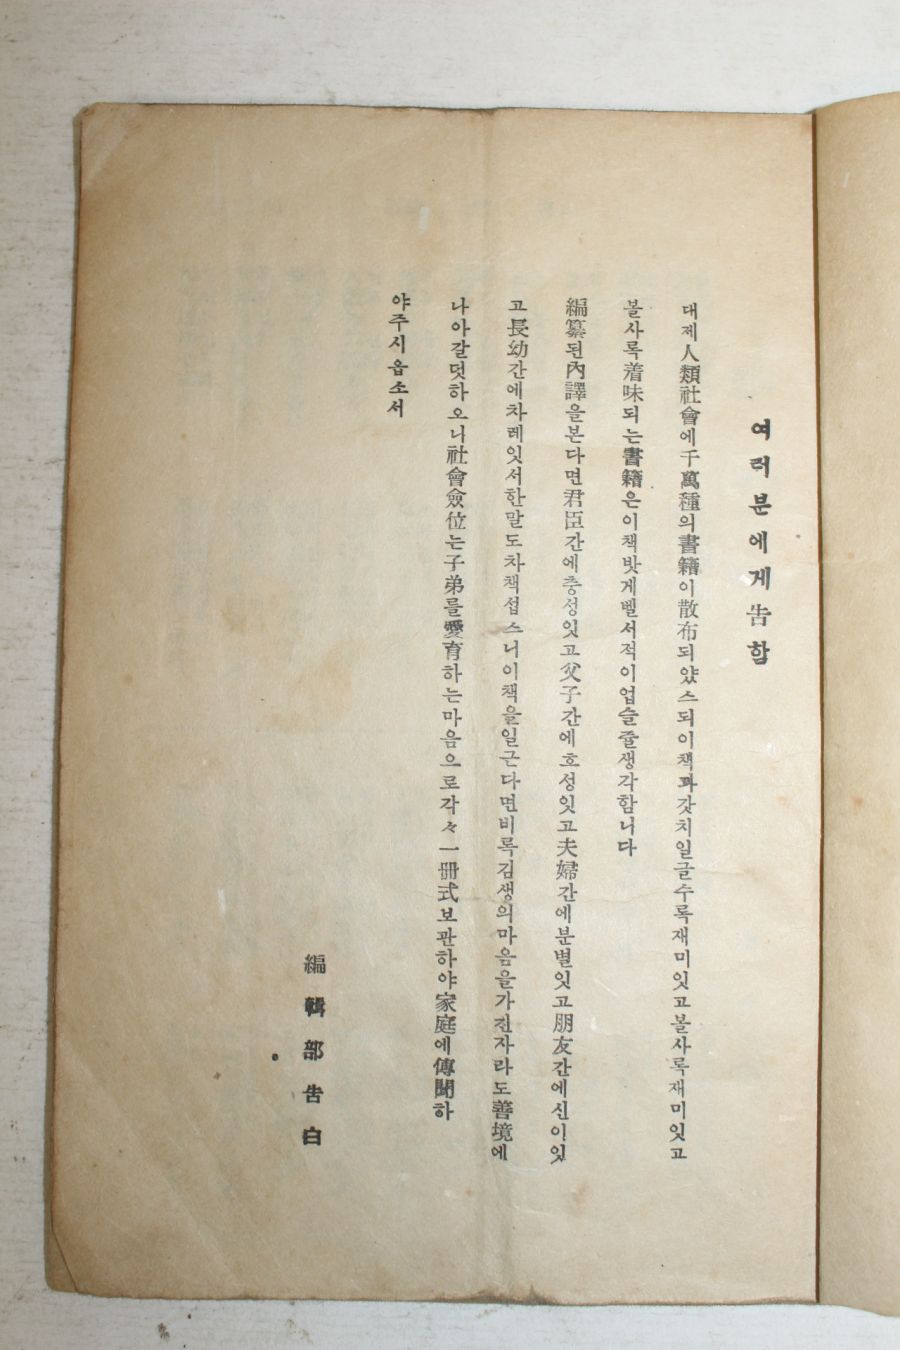 여러분에게告함
대제人類社會에千萬種의書籍이散布되얏스되이책과갓치일글수록재미잇고볼사록재미잇고
볼사록着味되는書籍은이책밧게벨서적이업슬쥴생각함니다
編纂된內譯을본다면君臣간에충성잇고父子간에호성잇고夫婦간에분별잇고朋友간에신이잇
고長幼간에차레잇서한말도차책섭스니이책을일근다면비록김생의마음을가진자라도善境에
나아갈덧하오니社會僉位는子弟를愛育하는마음으로각々一冊式보관하야家庭에傳聞하
야주시옵소서
編輯部告白